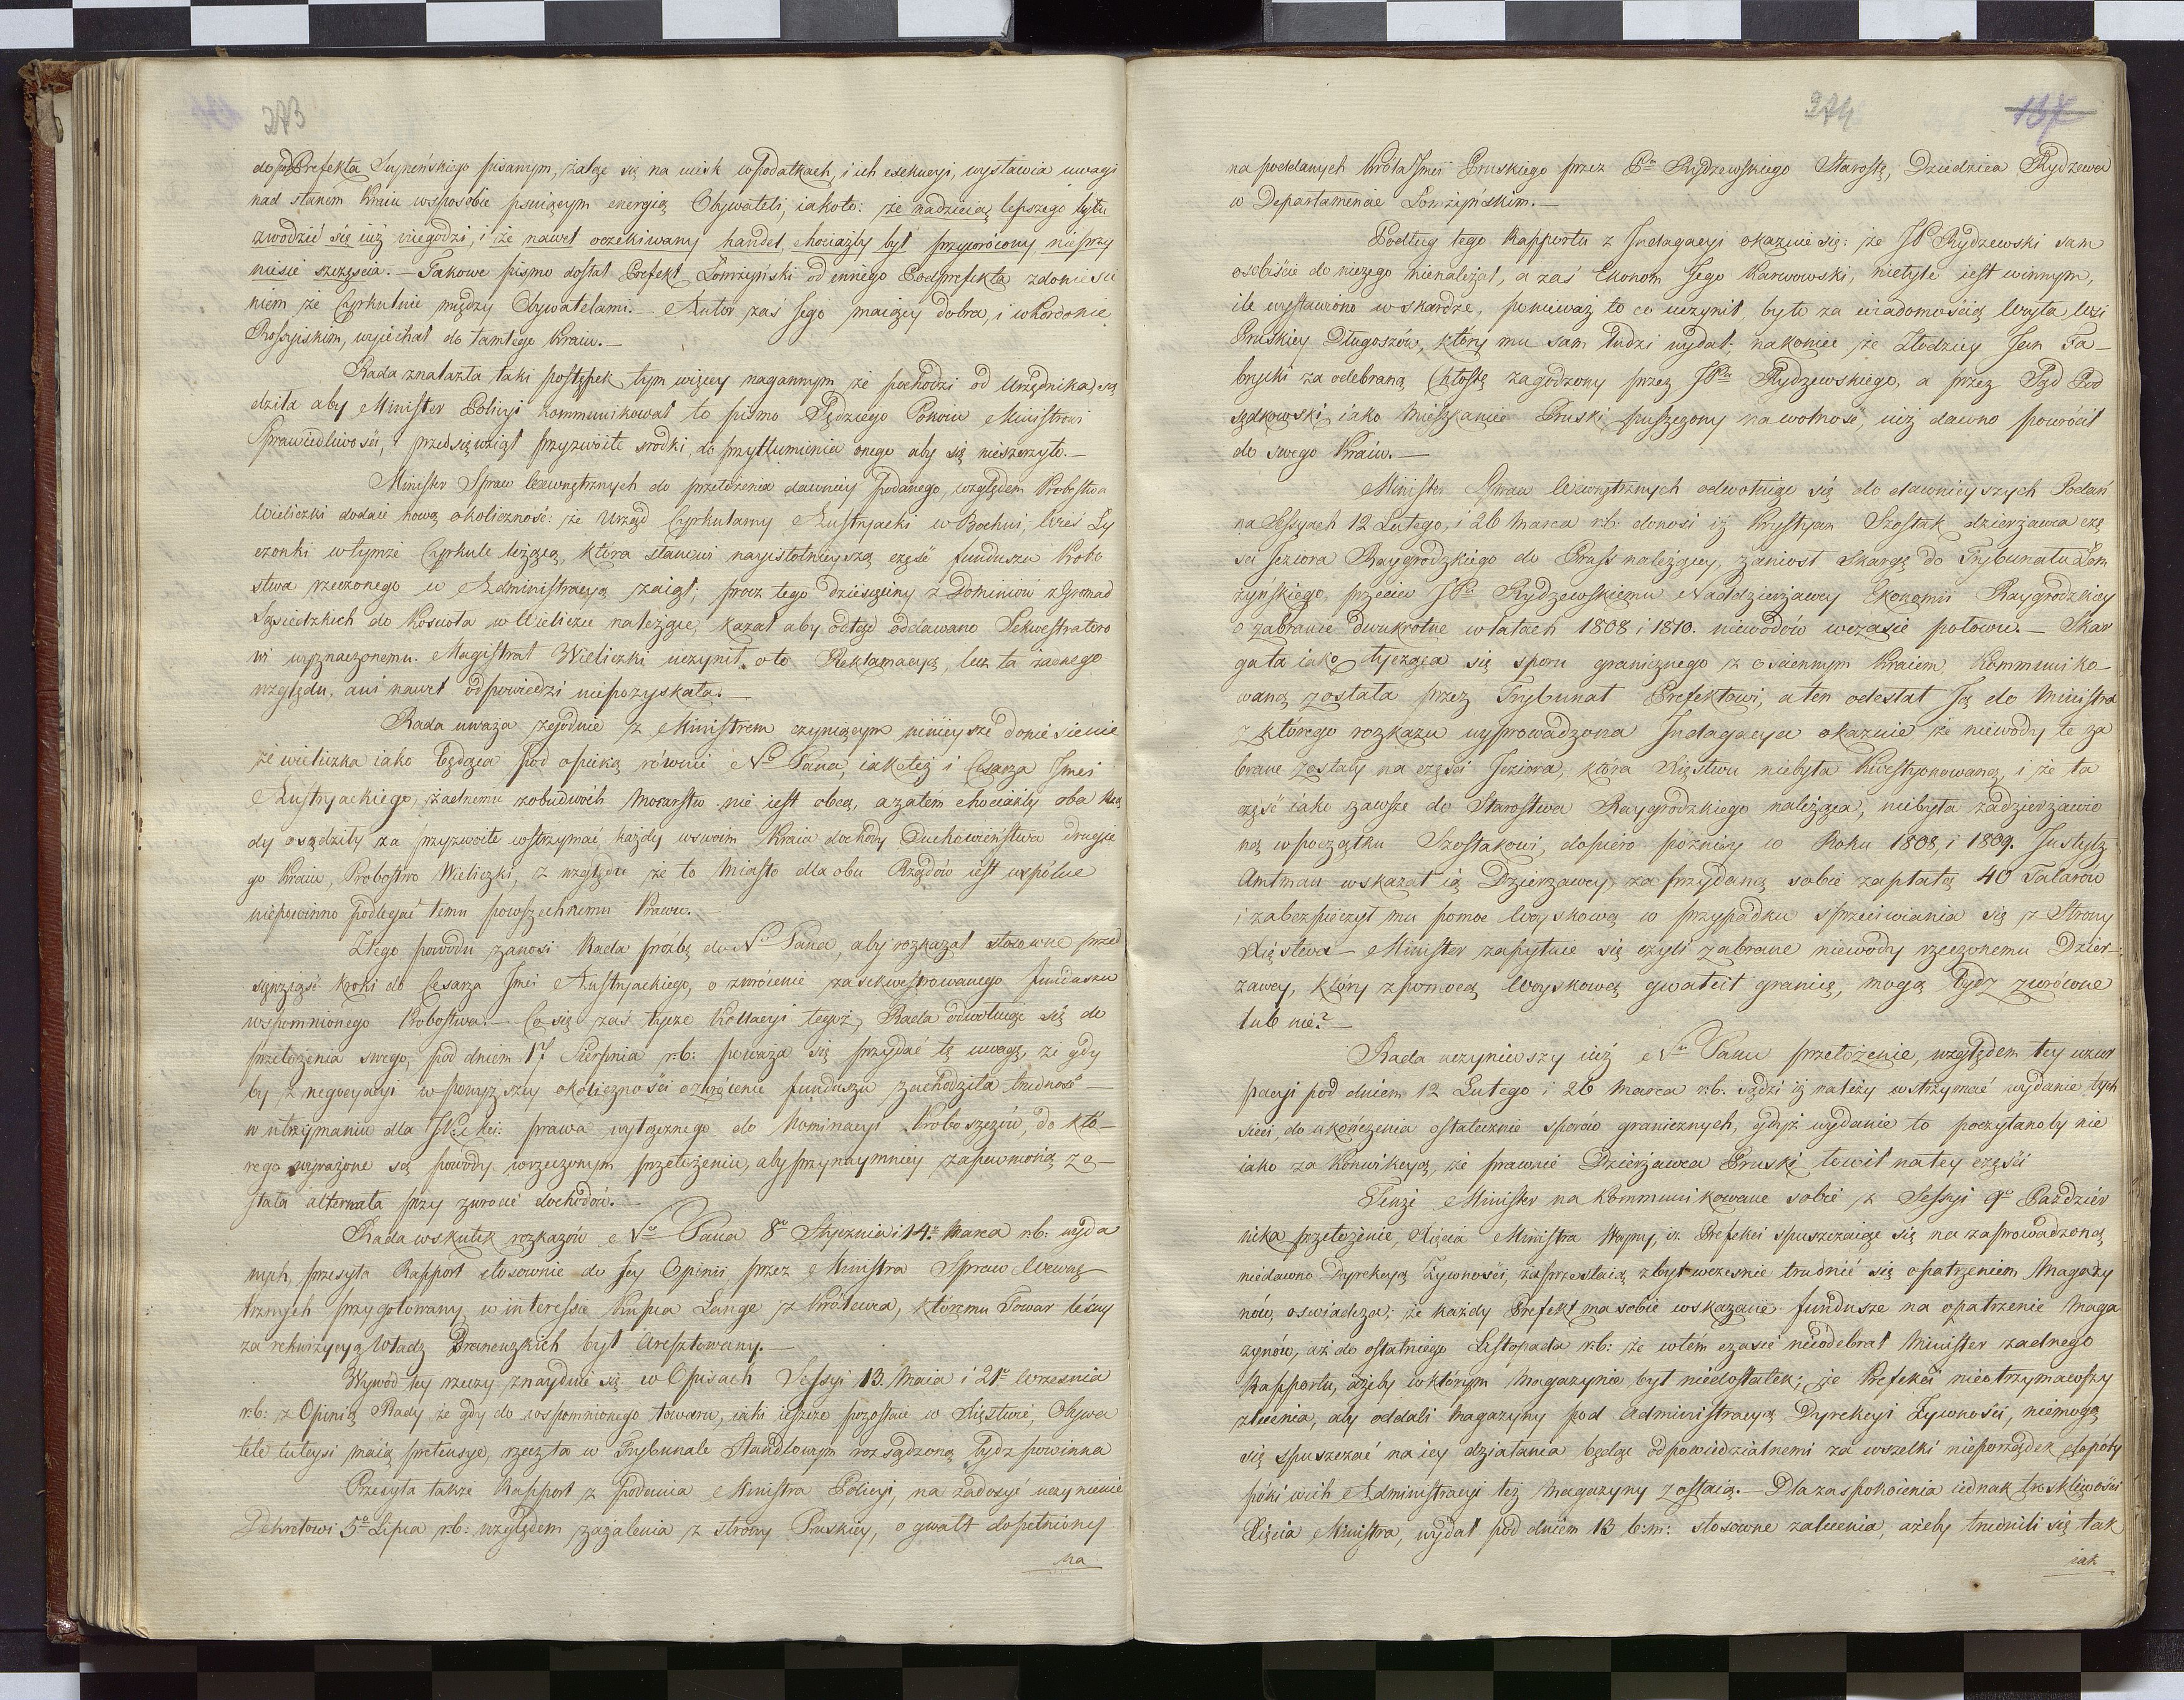 273
do pod Prefekta Seyneńskiego pisanym, żaląc się na ucisk w podatkach, i ich exekucyi, wystawia uwagi
nad stanem Kraiu w sposobie psuiącym energią Obywateli, iakoto: że nadzieią lepszego bytu
zwodzić się iuż niegodzi, i że nawet oczekiwany handel, chociażby był przywrócony, nie przy
niesie szczęścia. — Takowe pismo dostał Prefekt Łomżyński od innego Podprefekta z doniesie
niem że Cyrkuluie między Obywatelami. — Autor zaś Jego maiący dobra, i w Kordonie
Rossyiskim, wyiechał do tamtego Kraiu. —
Rada znalazła taki postępek tym więcey nagannym, że pochodzi od Urzędnika, są
dziła aby Minister Policyi kommunikował to pismo Sędziego Pokoiu Ministrowi
Sprawiedliwości, i przedsięwziął przyzwoite srodki, do przytłumienia onego aby się nieszerzyło. —
Minister Spraw Wewnętrznych do przełożenia dawniey podanego, względem Probostwa
Wieliczki dodaie nową okoliczność: że Urząd Cyrkularny Austryacki w Bochni, Wieś Ły
czonki w tymże Cyrkule leżącą, która stanowi nayistotnieyszą część funduszu Probo
stwa rzeczonego w Administracyą zaiął; procz tego dziesięciny z Dominiów z Gromad
Sąsiedzkich do Kościoła w Wieliczce należące, kazał aby odtąd oddawano Sekwestratoro
wi wyznaczonemu. Magistrat Wieliczki uczynił o to Reklamacyą, lecz ta żadnego
względu, ani nawet odpowiedzi niepozyskała. —
Rada uważa zgodnie z Ministrem czyniącym ninieysze doniesienie
że Wieliczka iako będąca pod opieką równie N° Pana, iako też i Cesarza Jmci
Austryackiego, żadnemu z obudwóch Mocarstw nie iest obcą, a zatém chociażby oba Rzą
dy osądziły za przyzwoite wstrzymać każdy w swoim Kraiu dochody Duchowieństwa drugie
go Kraiu, Probostwo Wieliczki, z względu że to Miasto dla obu Rządów iest wspólne
niepowinno podlegać temu powszechnemu Prawu. —
Z tego powodu zanosi Rada proźbę do N° Pana, aby rozkazał stosowne przed
sięwziąść kroki do Cesarza Jmci Austryackiego, o zwrócenie zasekwestrowanego funduszu
wspomnionego Probostwa. — Co się zaś tycze Kollacyi tegoż, Rada odwołuiąc się do
przełożenia swego, pod dniem 17 Sierpnia r: b: poważa się przydać tę uwagę, że gdy
by z negocyacyi w powyższey okoliczności o zwrócenie funduszu zachodziła trudność —
w utrzymaniu dla JKMci: prawa wyłącznego do Nominacyi Proboszczów, do któ —
rego wyrażone są powody w rzeczonym przełożeniu, aby przynaymniey zapewnioną zo —
stała alternata przy zwrocie dochodów. —
Rada w skutek rozkazów N° Pana 8° Stycznia i 14° Marca r: b: wyda
nych, przesyła Rapport stosownie do Jey Opinii przez Ministra Spraw Wewnę
trznych przygotowany, w interessie Kupca Lange z Królewca, któremu Towar leśny
za rekwizycyą Władz Francuzkich był aresztowany. —
Wywód tey rzeczy znayduie się w Opisach Sessyi 13. Maia i 21° Wrzesnia
r: b: z Opinią Rady że gdy do wspomnionego towaru, iaki ieszcze pozostaie w Xięstwie, Obywa
tele tuteysi maią pretensye, rzecz ta w Trybunale Handlowym rozsądzoną bydz powinna
Przesyła także Rapport z podania Ministra Policyi, na zadosyć uczynienie
Dekretowi 5° Lipca r: b: względem zażalenia z strony Pruskiey, o gwałt dopełniony
na
274
167
na poddanych Króla Jmci Pruskiego przez Pa Rydzewskiego Starostę, Dziedzica Rydzewa
w Departamencie Łomżyńskim. —
Podług tego Rapportu z Indagacyi okazuie się: że JP Rydzewski sam
osobiście do niczego nienależał, a zaś Ekonom Jego Karwowski, nietyle iest winnym,
ile wystawiono w skardze, ponieważ to co uczynił, było za wiadomością Woyta Wsi
Pruskiey Długoszów, który mu sam ludzi wydał; nakoniec że Złodziey Jan Fa —
brycki za odebraną Chłostę zagodzony przez JPa Rydzewskiego, a przez Sąd Pod
sędkowski iako Mieszkaniec Pruski puszczony na wolność, iuż dawno powrócił
do swego Kraiu. —
Minister Spraw Wewnętrznych odwołuiąc się do dawnieyszych Podań
na Sessyach 12 Lutego, i 26 Marca r: b: donosi iż Krystyan Szostak dzierżawca czę
ści Jeziora Raygrodzkiego do Pruss należącey, zaniosł skargę do Trybunału Łom
żyńskiego, przeciw JPu Rydzewskiemu Naddzierżawcy Ekonomii Raygrodzkiey
o zabranie dwukrotne w latach 1808 i 1810. niewodów wczasie połowu. — Skar
ga ta iako tycząca się sporu granicznego z ościennym Kraiem Kommuniko —
waną została przez Trybunał Prefektowi, a ten odesłał Ją do Ministra
z którego rozkazu wyprowadzona Indagacya okazuie że niewody te za
brane zostały na części Jeziora, która Xięstwu niebyła Kwestyonowaną, i że ta
część iako zawsze do Starostwa Raygrodzkiego należąca, niebyła zadzierżawio
ną w początku Szostakowi, dopiero późniey w Roku 1808, i 1809. Justytz
Amtman wskazał ią Dzierżawcy za przydaną sobie zapłatą 40 Talarow
i zabezpieczył mu pomoc Woyskową w przypadku sprzeciwiania się z Strony
Xięstwa — Minister zapytuie się czyli zabrane niewody rzeczonemu Dzier —
żawcy, który z pomocą Woyskową gwałcił granicę, mogą bydz zwrócone
lub nie? —
Rada uczyniwszy iuż N° Panu przełożenie, względem tey uzur
pacyi pod dniem 12 Lutego i 26 Marca r: b. sądzi iż należy wstrzymać wydanie tych
sieci, do ukończenia ostatecznie sporów granicznych, gdyż wydanie to poczytanoby nie
iako za Konwikcyą, że prawnie Dzierżawca Pruski łowił na tey części
Tenże Minister na Kommunikowane sobie z Sessyi 9° Paździer
nika przełożenie, Xięcia Ministra Woyny, iż Prefekci spuszczaiąc się na zaprowadzoną
niedawno Dyrekcyą Żywności, zaprzestaią zbyt wcześnie trudnić się opatrzeniem Magazy
nów, oswiadcza; że każdy Prefekt ma sobie wskazane fundusze na opatrzenie Maga
zynów, aż do ostatniego Listopada r: b: że w tém czasie nieodebrał Minister żadnego
Rapportu, ażeby w którym Magazynie był niedostatek; że Prefekci nieotrzymawszy
zlecenia, aby oddali Magazyny pod Administracyą Dyrekcyi Żywności, niemogą
się spuszczać na iey działania będąc odpowiedzialnemi za wszelki nieporządek dopóty
póki w ich Administracyi też Magazyny zostaią. — Dla zaspokoienia iednak troskliwości
Xięcia Ministra, wydał pod dniem 13 b: m: stosowne zalecenia, ażeby trudnili się tak
iak